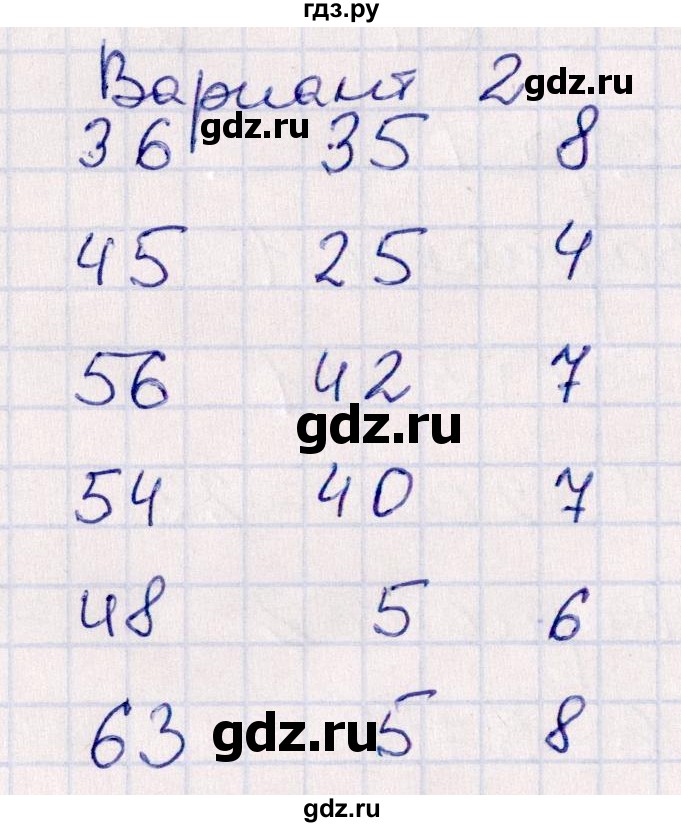 гдз.ру
Вариант 2 gdz.ru
gdz.ru
36 35 8
45 25 4
56 42 7
gdz.ru
54 40 7
48 5 6
63 5 8
gdz.ru
gdz.ru